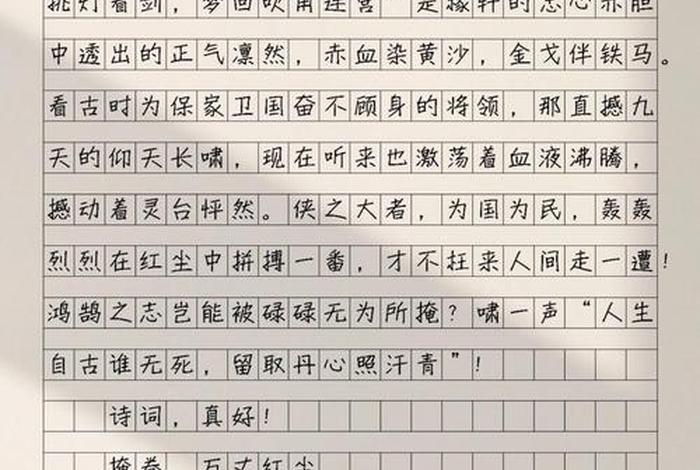 挑灯看剑，梦回吹角连营”是稼轩的忠心赤胆
中透出的正气凛然，赤血染黄沙，金戈伴铁马。
看古时为保家卫国奋不顾身的将领，那直撼九
天的仰天长啸，现在听来也激荡着血液沸腾，
撼动着灵台怦然。侠之大者，为国为民，轰轰
烈烈在红尘中拼搏一番，才不枉来人间走一遭！
鸿鹄之志岂能被碌碌无为所掩？啸一声“人生
自古谁无死，留取丹心照汗青”！
诗词，真好！
掩卷，万丈红尘